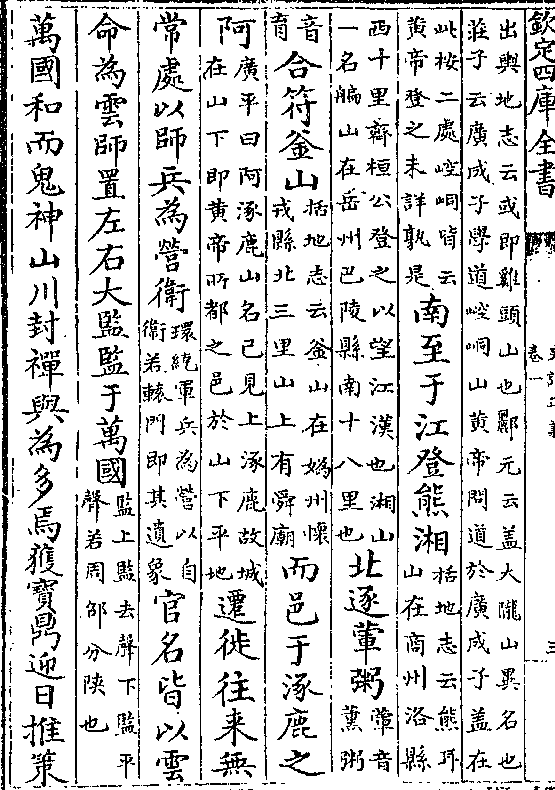 欽定四庫全書
卷一
三
出輿地志云或即雞頭山也酈元云盖大隴山異名也
莊子云廣成子學道崆峒山黃帝問道於廣成子盖在
此桉二處崆峒皆云
黃帝登之未詳孰是
南至于江登熊湘
括地志云熊耳
山在商州洛縣
西十里齊桓公登之以望江漢也湘山
一名艑山在岳州巴陵縣南十八里也
北逐葷粥
葷音
薰粥
音
育
合符釜山
括地志云釜山在媯州懷
戎縣北三里山上有舜廟
而邑于涿鹿之
阿
廣平曰阿涿鹿山名已見上涿鹿故城
在山下即黃帝所都之邑於山下平地
遷徙往来無
常處以師兵為營衛
環繞軍兵為營以自
衛若轅門即其遺象
官名皆以雲
命為雲師置左右大監監于萬國
監上監去聲下監平
聲若周邵分陜也
萬國和而鬼神山川封禪與為多焉獲寶鼎迎日推策